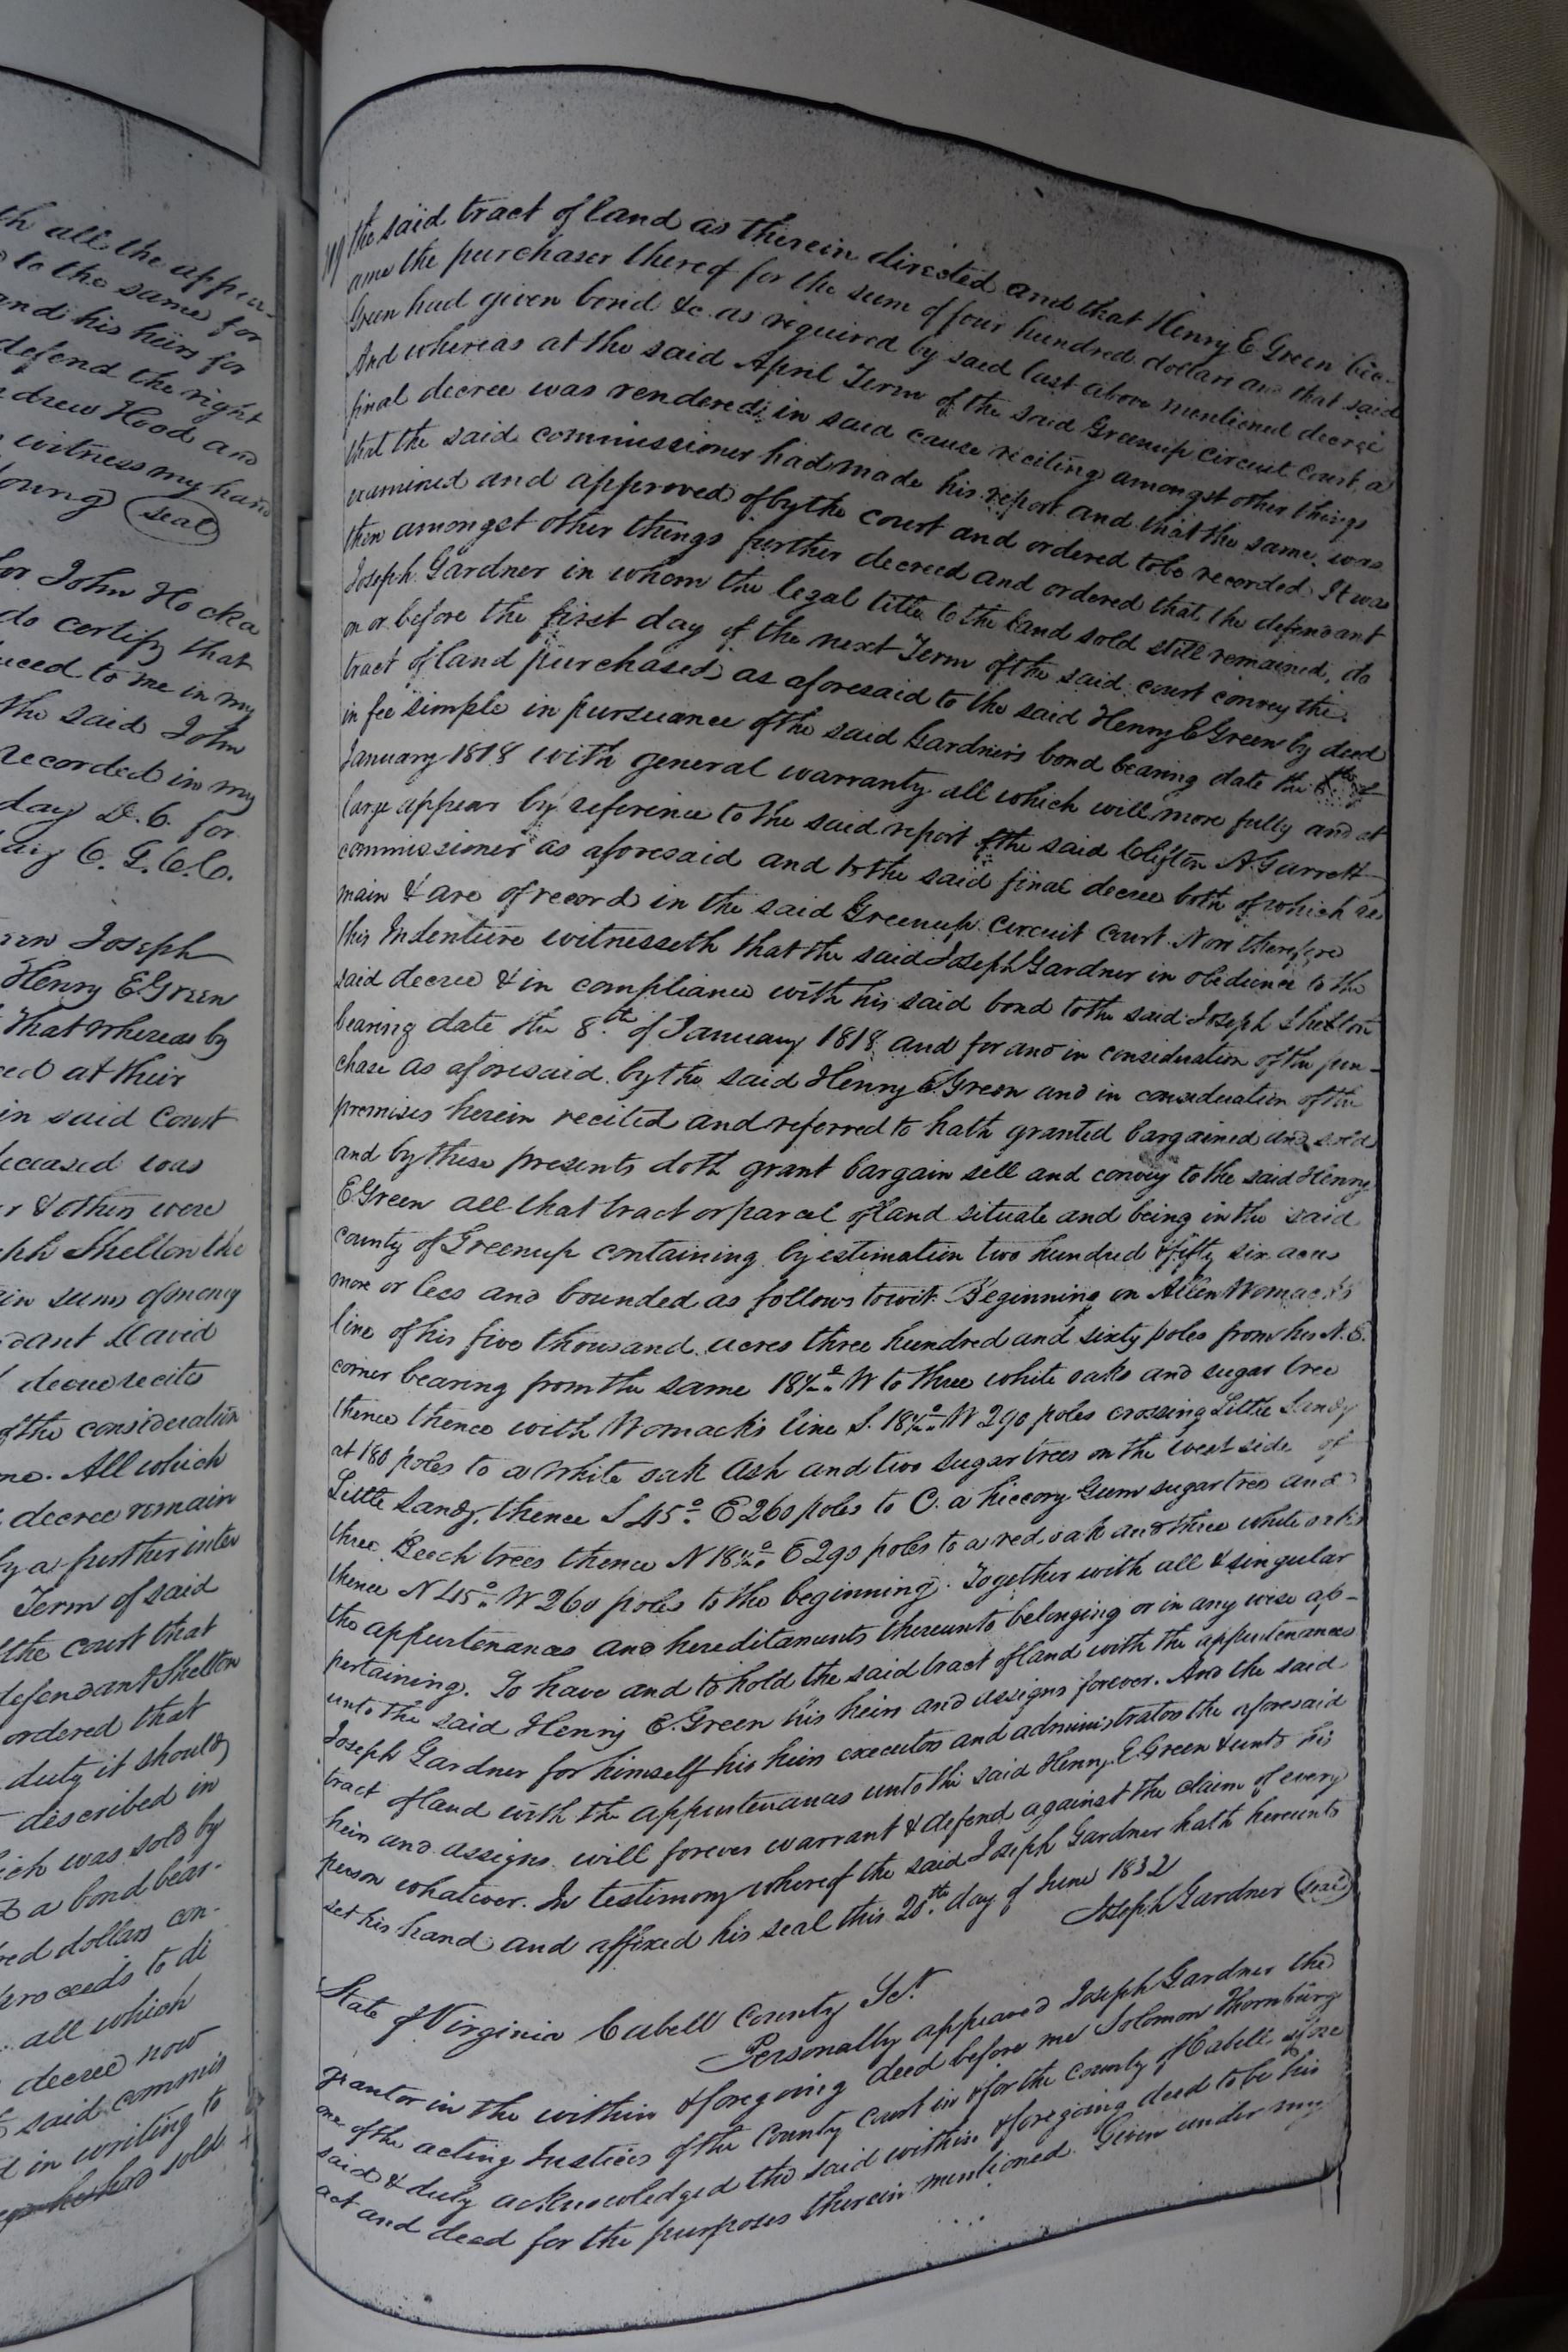 th all the appur-
to the same for
and his heirs for
defend the right
drew Hood and
witness my hand
oung (seal)
for John Hocka
do certify that
uced to me in my
the said John
recorded in my
day D. C. for
C. G. C. C.
Joseph
Henry E Green
That whereas by
at their
in said Court
deceased was
r & others were
ph Shelton the
in sums of money
dant David
decree recites
of the consideration
me. All which
decree remain
by a further inter
Term of said
the court that
defendant Shelton
ordered that
duty it should
described in
ich was sold by
a bond bear-
red dollars con-
proceeds to di
all which
decree now
said commis
d in writing to
he had sold
the said tract of land as therein directed and that Henry E Green bec-
ame the purchaser thereof for the sum of four hundred dollars and that said
Green had given bond &c. as required by said last above mentioned decree
And whereas at the said April Term of the said Greenup circuit court a
final decree was rendered in said cause reciting amongst other things
that the said commissioner had made his report and that the same was
examined and approved of by the court and ordered to be recorded. It was
then amongst other things further decreed and ordered that the defendant
Joseph Gardner in whom the legal title to the land sold still remained, do
on or before the first day of the next Term of the said court convey the
tract of land purchased as aforesaid to the said Henry E Green by deed
in fee simple in pursuance of the said Gardner's bond bearing date the 8th of
January 1818 with general warranty all which will more fully and at
large appear by reference to the said report of the said Clifton A. Garrett
commissioner as aforesaid and to the said final decree both of which re
main & are of record in the said Greenup Circuit Court. Now therefore
this Indenture witnesseth that the said Joseph Gardner in obedience to the
said decree & in compliance with his said bond to the said Joseph Shelton
bearing date the 8th of January 1818 and for and in consideration of the pur-
chase as aforesaid by the said Henry E Green and in consideration of the
premises herein recited and referred to hath granted bargained and sold
and by these presents doth grant bargain sell and convey to the said Henry
E Green all that tract or parcel of land situate and being in the said
county of Greenup containing by estimation two hundred & fifty six acres
more or less and bounded as follows towit. Beginning on Allen Womack's
line of his five thousand acres three hundred and sixty poles from his N. E.
corner bearing from the same 18½° W to three white oaks and sugar tree
thence thence with Womack's line S. 18½° W 290 poles crossing Little Sandy
at 180 poles to a white oak ash and two sugar trees on the west side of
Little Sandy, thence S 45° E 260 poles to C. a hiccory Gum sugar tree and
three Beech trees thence N 18½° E 290 poles to a red oak and three white oaks
thence N 45° W 260 poles to the beginning. Together with all & singular
the appurtenances and hereditaments thereunto belonging or in any wise ap-
pertaining. To have and to hold the said tract of land with the appurtenances
unto the said Henry E. Green his heirs and assigns forever. And the said
Joseph Gardner for himself his heirs executors and administrators the aforesaid
tract of land with the appurtenances unto the said Henry E Green & unto his
heirs and assigns will forever warrant & defend against the claim of every
person whatever. In testimony whereof the said Joseph Gardner hath hereunto
set his hand and affixed his seal this 20th day of June 1832
Joseph Gardner (seal)
State of Virginia Cabell County Sct.
Personally appeared Joseph Gardner the
grantor in the within & foregoing deed before me Solomon Thornburg
one of the acting Justices of the County Court in & for the county of Cabell afore
said & duly acknowledged the said within & foregoing deed to be his
act and deed for the purposes therein mentioned. Given under my